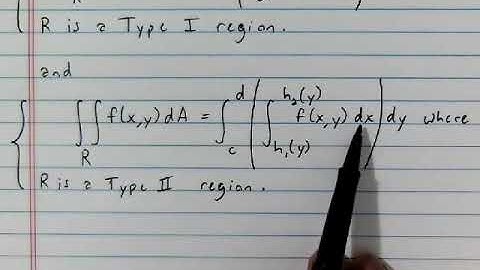 R is a Type I region.
and
∬_R f(x,y) dA = ∫_c^d ( ∫_{h₁(y)}^{h₂(y)} f(x,y) dx ) dy where
R is a Type II region.